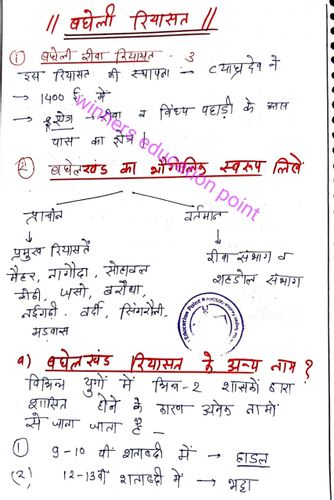 || बघेली रियासत ||
① बघेली रीवा रियासत - 3
→ इस रियासत की स्थापना → व्याघ्रदेव ने
→ 1400 ई. में
→ क्षेत्र → रीवा व विंध्य पहाड़ी के आस
पास का क्षेत्र।
② बघेलखंड का भौगोलिक स्वरूप लिखें
प्राचीन वर्तमान
प्रमुख रियासतें रीवा संभाग व
मैहर, नागौदा, सोहावल शहडोल संभाग
जसो, बरौंधा,
नईगढ़ी, वर्दी, सिंगरौली,
मड़वास
winners education point
Education Point
a) बघेलखंड रियासत के अन्य नाम ?
विभिन्न युगों में भिन्न-2 शासकों द्वारा
शासित होने के कारण अनेक नामों
से जाना जाता है -
① 9-10 वी शताब्दी में → डाहल
(2) 12-13वी शताब्दी में → भट्टा